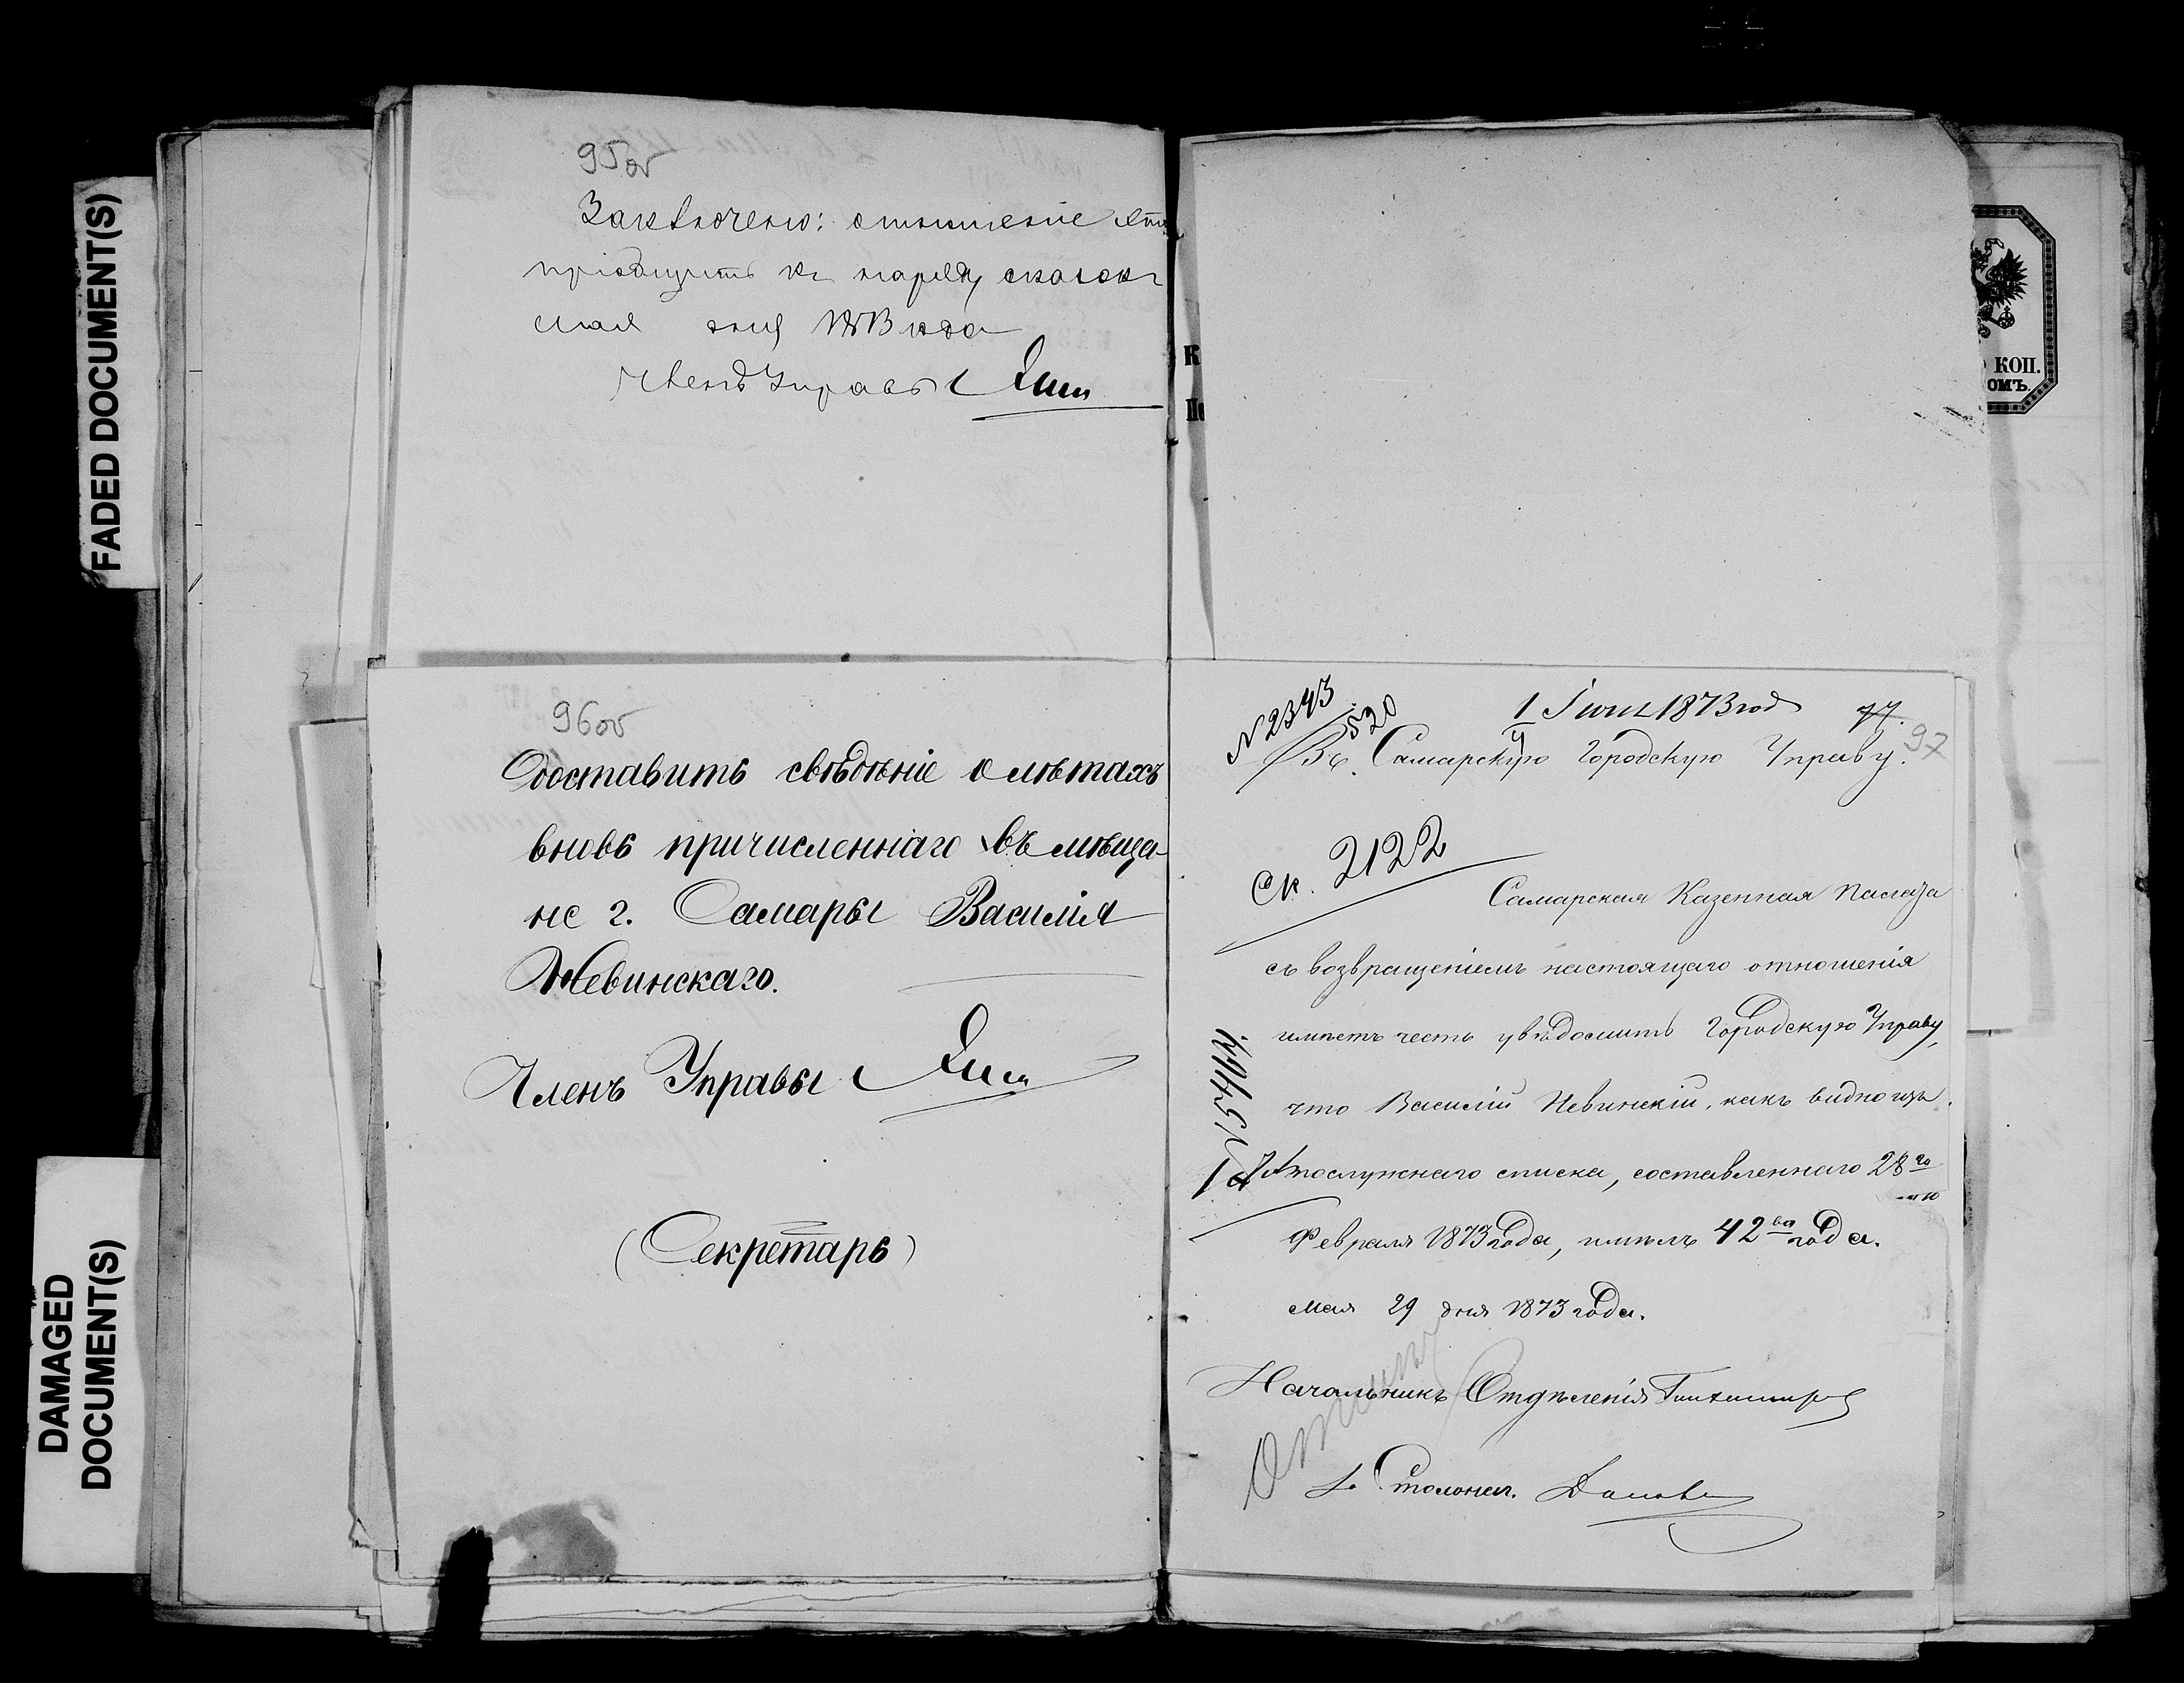 FADED DOCUMENT(S)
DAMAGED
DOCUMENT(S)
95об
Заключено: отношеніе
пріобщить къ наряду сказокъ
мая дня 1873 года
Членъ Управы
96об
Доставить свѣдѣніе о лѣтахъ
вновь причисленнаго въ мѣща-
не г. Самары Василія
Невинскаго.
Членъ Управы
(Секретарь)
К
КОП.
ОМЪ.
N 2343
520
1 Іюня 1873 год
97.
97
Въ Самарскую Городскую Управу.
Ск. 2122
Самарская Казенная Палата
съ возвращеніемъ настоящаго отношенія
имѣетъ честь увѣдомить Городскую Управу,
что Василій Невинскій, какъ видно изъ
послужнаго списка, составленнаго 28го
Февраля 1873 года, имѣлъ 42ва года.
Мая 29 дня 1873 года.
Начальникъ Отдѣленія
Столонач.